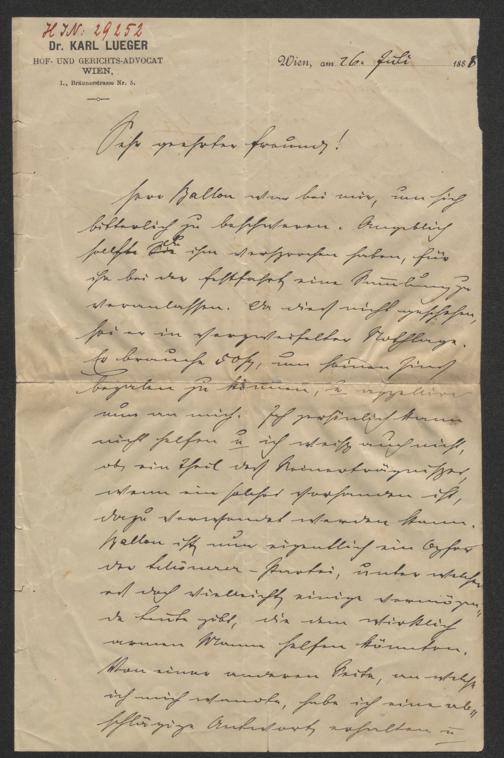 HIN: 29252
Dr. KARL LUEGER
HOF- UND GERICHTS-ADVOCAT
WIEN,
I., Bräunerstrasse Nr. 5.
Wien, am 26. Juli 188
Sehr geehrter Freund!
Herr Ballon war bei mir, um sich
bitterlich zu beschweren. Angeblich
sollte ihm versprochen haben, für
ihn bei der Festfahrt eine Sammlung zu
veranlassen. Da dies nicht geschehen,
sei er in verzweifelter Nothlage.
Er brauche 50 fl, um seinen Zins
bezalen zu können, u. appellire
nun an mich. Ich persönlich kann
nicht helfen u ich weiß auch nicht,
ob ein Theil des Reinerträgnißes,
wenn ein solches vorhanden ist,
dazu verwendet werden kann.
Ballon ist nun eigentlich ein Opfer
der -Partei, unter welcher
es doch vielleicht einige vermögen-
de Leute gibt, die dem wirklich
armen Manne helfen könnten.
Von einer anderen Seite, an welche
ich mich wandte, habe ich eine ab-
schlägige Antwort erhalten u